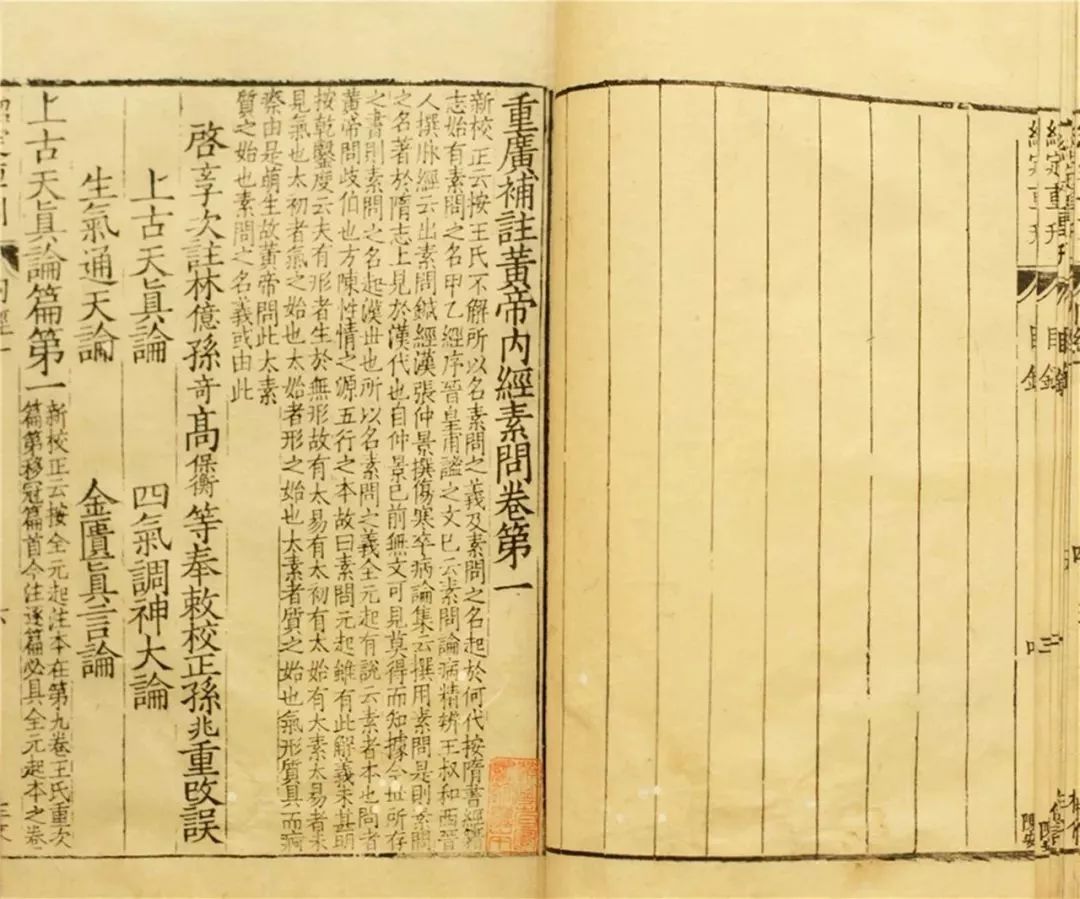 紹定重刊
目錄
重廣補註黃帝內經素問卷第一
新校正云按王氏不解所以名素問之義及素問之名起於何代按隋書經籍
志始有素問之名甲乙經序晉皇甫謐之文已云素問論病精辨王叔和西晉
人撰脉經云出素問鍼經漢張仲景撰傷寒卒病論集云撰用素問是則素問
之名著於隋志上見於漢代也自仲景已前無文可見莫得而知據今世所存
之書則素問之名起漢世也所以名素問之義全元起有說云素者本也問者
黃帝問歧伯也方陳性情之源五行之本故曰素問元起雖有此解義未甚明
按乾鑿度云夫有形者生於無形故有太易有太初有太始有太素太易者未
見氣也太初者氣之始也太始者形之始也太素者質之始也氣形質具而痾
瘵由是萌生故黃帝問此太素
質之始也素問之名義或由此
啓玄子次註林億孫奇高保衡等奉敕校正孫兆重改誤
上古天眞論　四氣調神大論
生氣通天論　金匱眞言論
上古天眞論篇第一
新校正云按全元起注本在第九卷王氏重次
篇第移冠篇首今注逐篇必具全元起本之卷